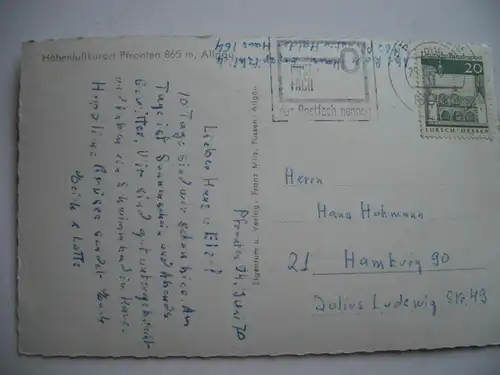 Höhenluftkurort Pfronten 865 m, Allgäu
Pfronten 24. Juni 70
Lieber Hans u. Else!
10 Tage sind wir schon hier. Am
Tage ist Sonnenschein und Abends
Gewitter. Wir sind gut untergebracht
und haben ein Schwimmbad im Hause.
Herzliche Grüße
Eigentum u. Verlag: Franz Milz, Füssen / Allgäu
Postfach nennen
20
LORSCH / HESSEN
Herrn
Hans Hohmann
21 Hamburg 90
Julius Ludwig Str. 49